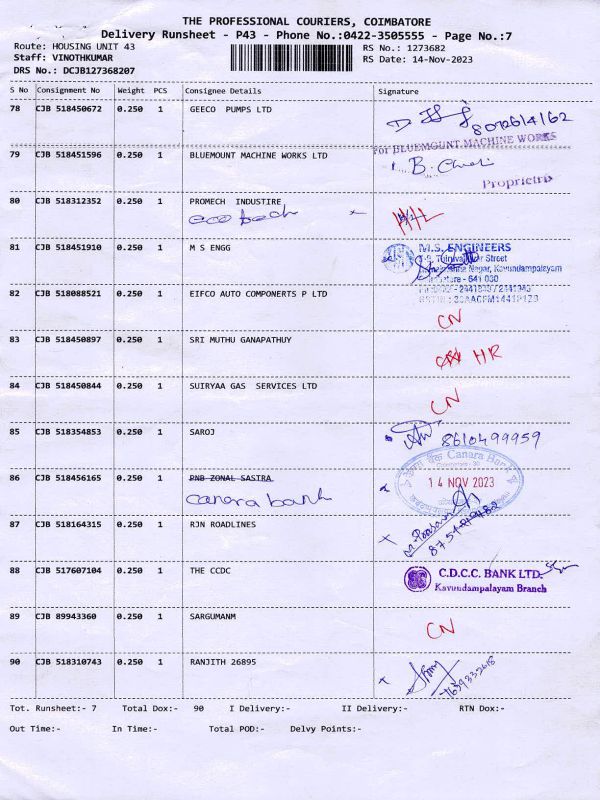 THE PROFESSIONAL COURIERS, COIMBATORE
Delivery Runsheet - P43 - Phone No.:0422-3505555 - Page No.:7
Route: HOUSING UNIT 43 RS No.: 1273682
Staff: VINOTHKUMAR RS Date: 14-Nov-2023
DRS No.: DCJB127368207
S No Consignment No Weight PCS Consignee Details Signature
78 CJB 518450672 0.250 1 GEECO PUMPS LTD
For BLUEMOUNT MACHINE WORKS
79 CJB 518451596 0.250 1 BLUEMOUNT MACHINE WORKS LTD
B.
80 CJB 518312352 0.250 1 PROMECH INDUSTIRE
eco tech
81 CJB 518451910 0.250 1 M S ENGG M.S. ENGINEERS
Street
Nagar, Kavundampalayam
- 641 030
82 CJB 518088521 0.250 1 EIFCO AUTO COMPONERTS P LTD
CN
83 CJB 518450897 0.250 1 SRI MUTHU GANAPATHUY
HR
84 CJB 518450844 0.250 1 SUIRYAA GAS SERVICES LTD
CN
85 CJB 518354853 0.250 1 SAROJ 8610499959
Canara Bank
86 CJB 518456165 0.250 1 PNB ZONAL SASTRA 14 NOV 2023
canara bank
87 CJB 518164315 0.250 1 RJN ROADLINES
88 CJB 517607104 0.250 1 THE CCDC C.D.C.C. BANK LTD.
Kavundampalayam Branch
89 CJB 89943360 0.250 1 SARGUMANM
CN
90 CJB 518310743 0.250 1 RANJITH 26895
Tot. Runsheet:- 7 Total Dox:- 90 I Delivery:- II Delivery:- RTN Dox:-
Out Time:- In Time:- Total POD:- Delvy Points:-